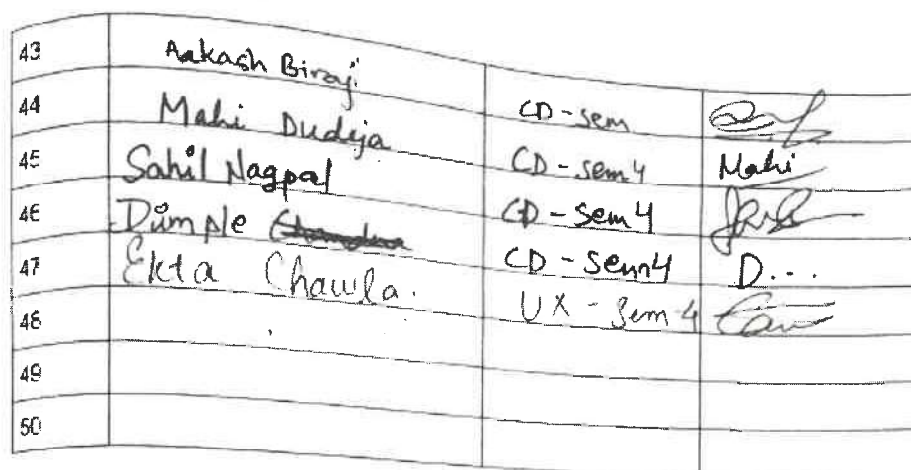 43 Aakash Biraji CD-sem
44 Mahi Dudeja CD-sem4 Mahi
45 Sahil Nagpal CD-sem4
46 Dimple CD-sem4 D...
47 Ekta Chawla. UX-sem-4
48
49
50